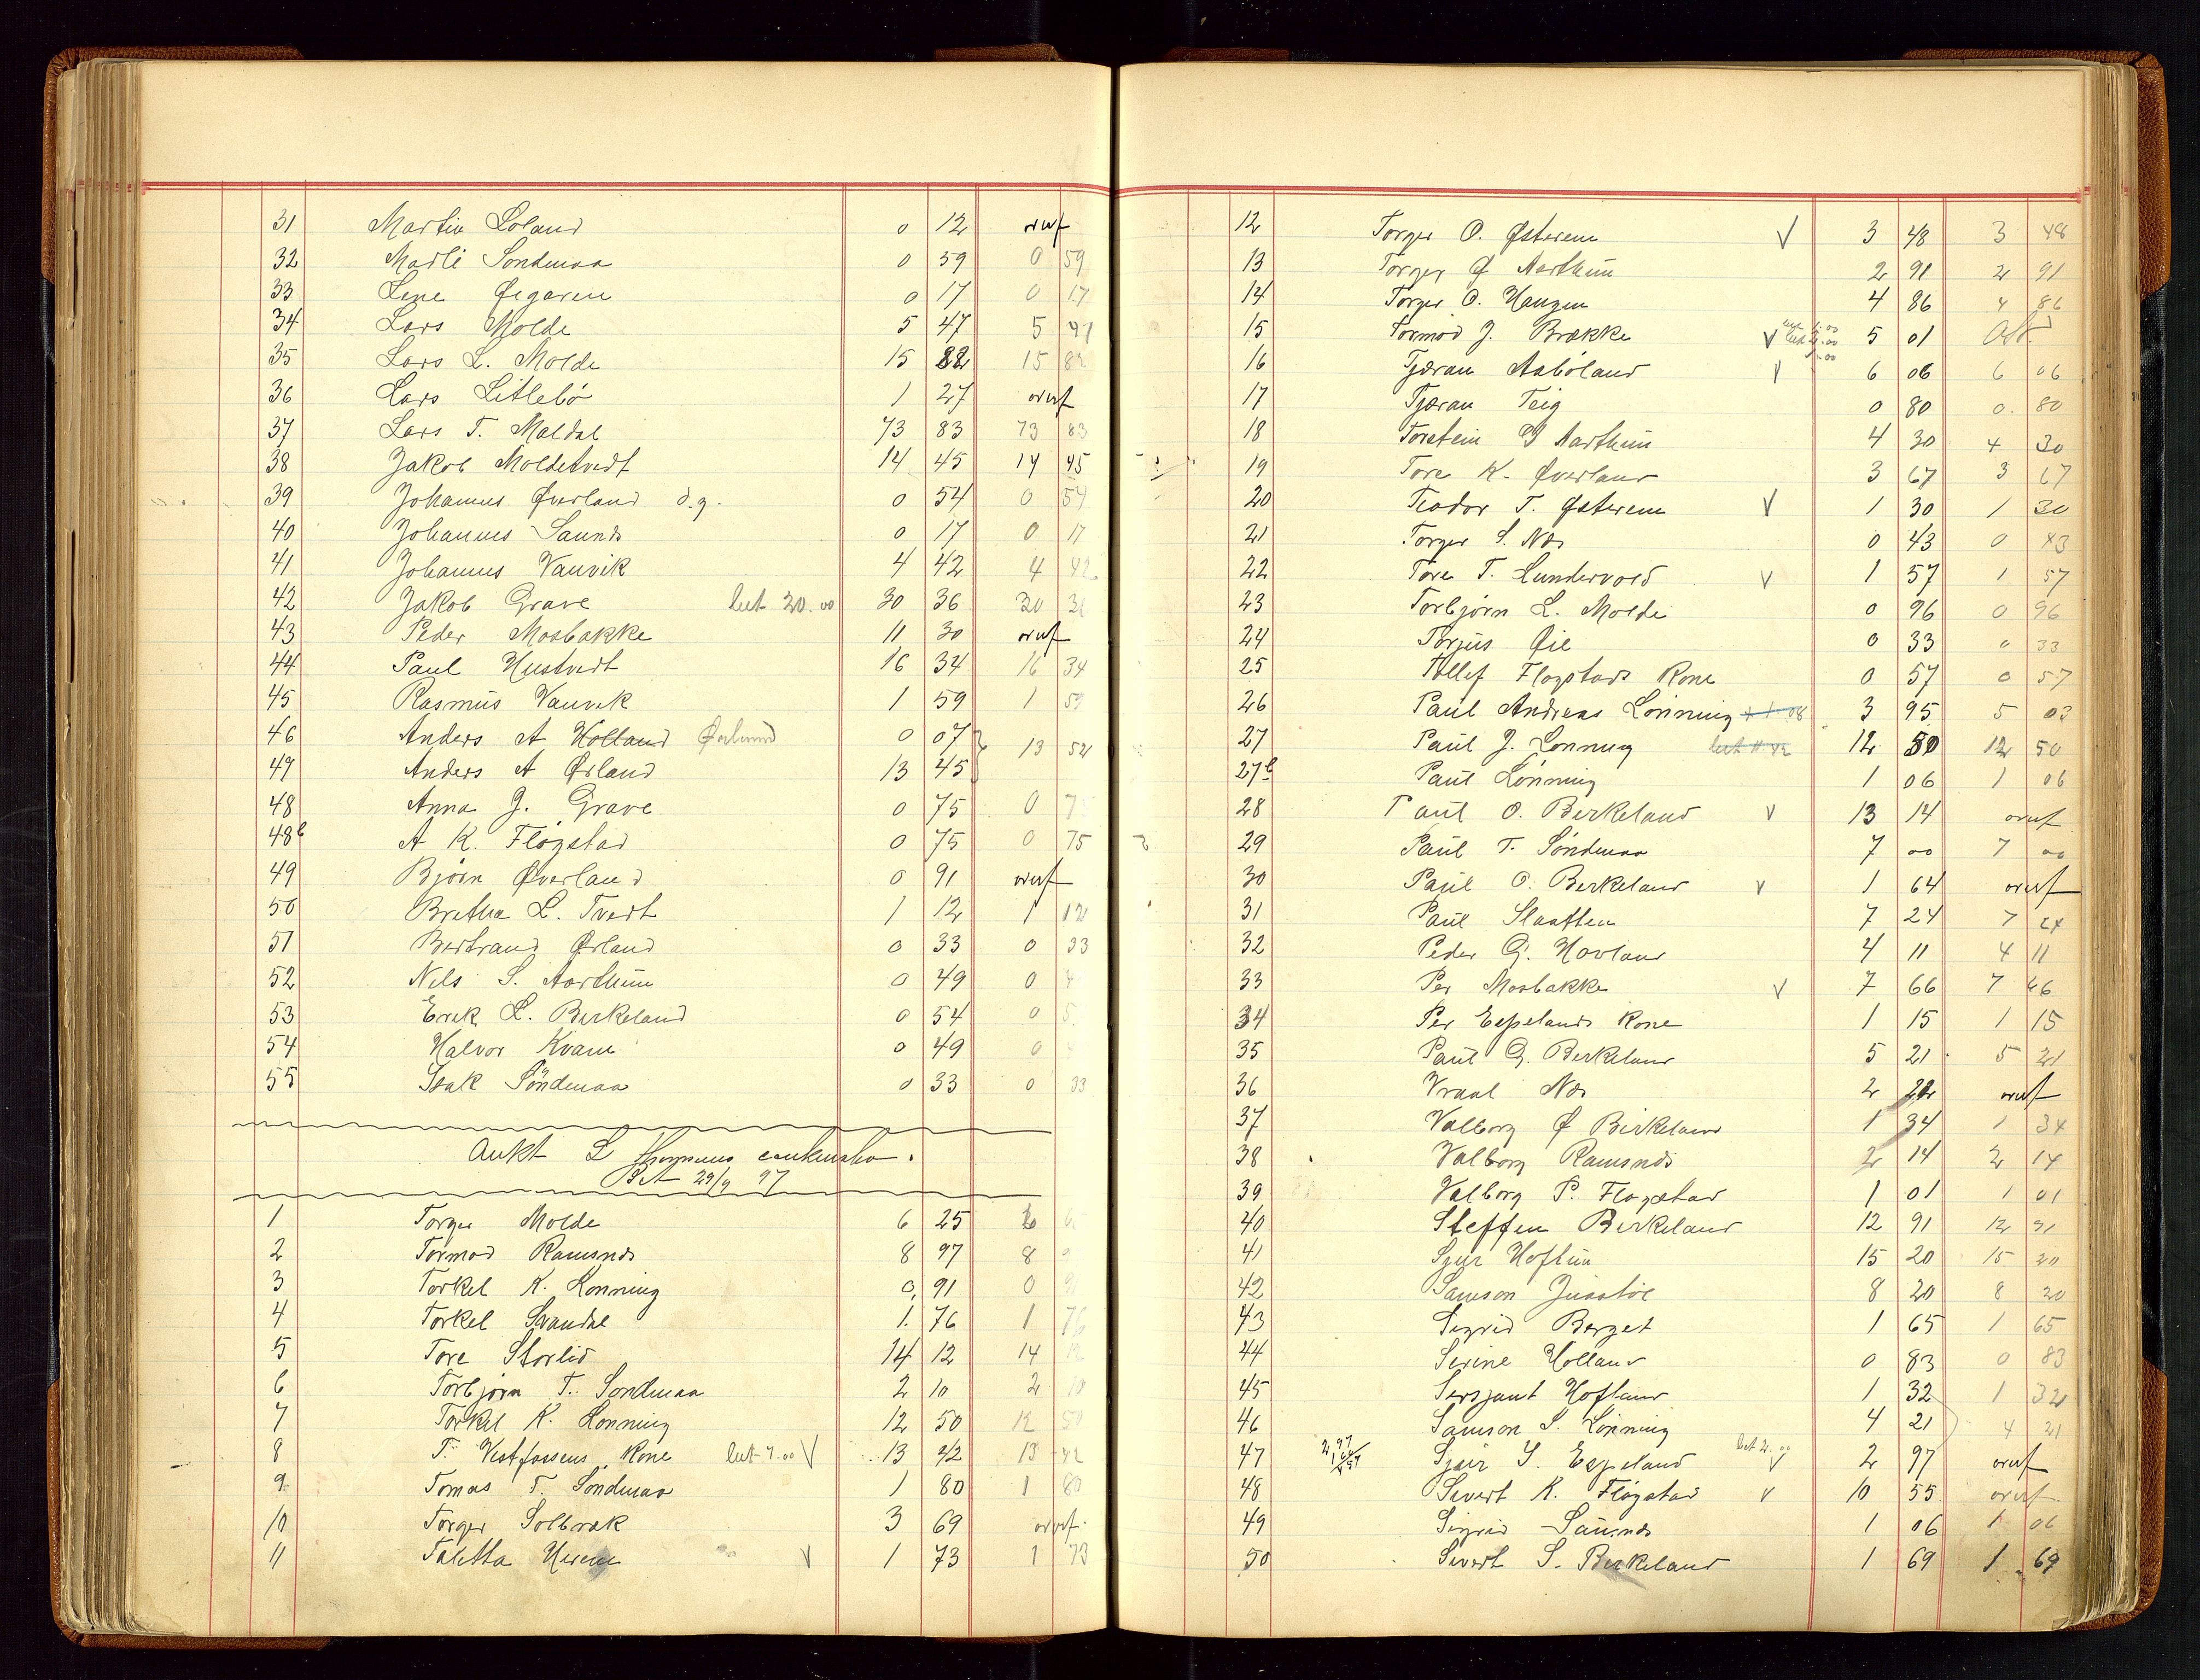 31 Martin Loland 0 12 orwf
32 Marli Sondenaa 0 59 0 59
33 Lene Øegaren 0 17 0 17
34 Lars Molde 5 47 5 47
35 Lars L. Molde 15 82 15 82
36 Lars Litlebø 1 27 orwf
37 Lars T. Maldal 73 83 73 83
38 Jakob Moldetvedt 14 45 14 45
39 Johannes Øverland d.y. 0 54 0 54
40 Johannes Saunds 0 17 0 17
41 Johannes Vanvik 4 42 4 42
42 Jakob Grave bet 20.00 30 36 30 36
43 Peder Mosbakke 11 30 orwf
44 Paul Hustvedt 16 34 16 34
45 Rasmus Vanvik 1 59 1 59
46 Anders A Holland 0 07
47 Anders A Ørland 13 45 13 52
48 Anna J. Grave 0 75 0 75
48b A K. Fløgstad 0 75 0 75
49 Bjørn Øverland 0 91 orwf
50 Bretha L. Tvedt 1 12 1 12
51 Bertrand Ørland 0 33 0 33
52 Nils S. Aarthun 0 49 0 4
53 Erik L. Birkeland 0 54 0 5
54 Halvor Kvam 0 49 0
55 Isak Söndenaa 0 33 0 33
Aukt L
Bet 29/9 97
1 Torger Molde 6 25 6
2 Tormod Ramsnds 8 97 8 9
3 Torkel K. Lonning 0 91 0 9
4 Torkel Svandal 1 76 1 76
5 Tore Storlid 14 12 14 12
6 Torbjørn T. Sondenaa 2 10 2 10
7 Torkel K. Lonning 12 50 12 50
8 T. Vestfossens Kone bet 7.00 V 13 42 13 42
9 Tomas T. Söndenaa 1 80 1 80
10 Torger Solbræk 3 69 orwf.
11 Taletta Herene V 1 73 1 73
12 Torger O. Østerem V 3 48 3 48
13 Torger Ø Aarthun 2 91 2 91
14 Torger O. Haugen 4 86 4 86
15 Tormod J. Brække V 5 01
16 Tjæran Aabøland V 6 06 6 06
17 Tjæran Teig 0 80 0 80
18 Torstein G Aarthun 4 30 4 30
19 Tore K. Øverland 3 67 3 67
20 Teodor T. Østerem V 1 30 1 30
21 Torger S. Næs 0 43 0 43
22 Tore T. Lundervold V 1 57 1 57
23 Torbjørn L. Molde 0 96 0 96
24 Torjus Øie 0 33 0 33
25 Tollef Flogstads Kone 0 57 0 57
26 Paul Andreas Lönning + 1.08 3 95 5 03
27 Paul J. Lonning 12 50 12 50
27b Paul Lönning 1 06 1 06
28 Paul O. Birkeland V 13 14 orwf
29 Paul T. Söndenaa 7 00 7 00
30 Paul O. Birkeland V 1 64 orwf
31 Paul Slaatten 7 24 7 24
32 Peder G. Hovland 4 11 4 11
33 Per Mosbakke V 7 66 7 66
34 Per Espelands Kone 1 15 1 15
35 Paul G. Birkeland 5 21 5 21
36 Vraal Næs 2 22 orwf
37 Valborg Ø Birkeland 1 34 1 34
38 Valborg Ramsnds 2 14 2 14
39 Valborg P. Flogstad 1 01 1 01
40 Steffen Birkeland 12 91 12 91
41 Sjur Hoftun 15 20 15 20
42 Samson Juustøl 8 20 8 20
43 Sigrid Berget 1 65 1 65
44 Serine Holland 0 83 0 83
45 Sersjant Hofland 1 32 1 32
46 Samson S. Lönning 4 21 4 21
47 Sjur S. Espeland bet 2.00 V 2 97 orwf
48 Sivert K. Flögstad V 10 55 orwf
49 Sigrid Saunds 1 06 1 06
50 Sivert S. Birkeland 1 69 1 69